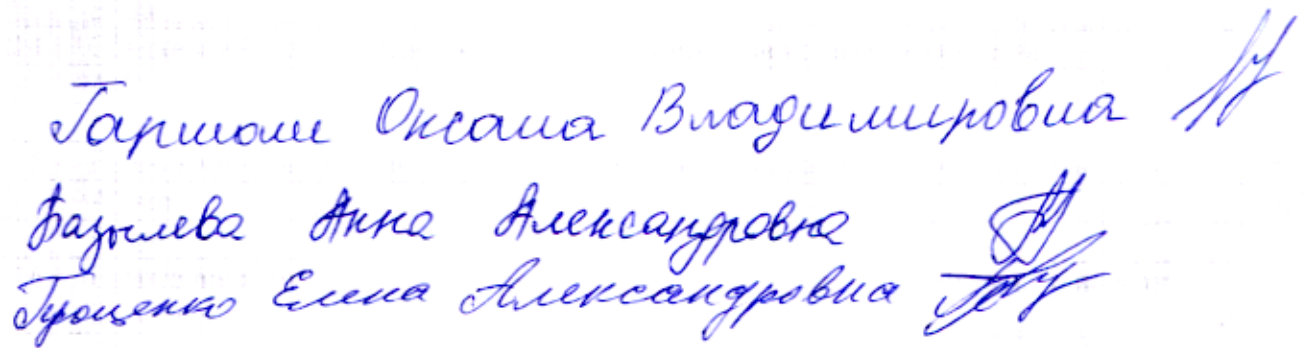 Оксана Владимировна
Базылева Анна Александровна
Елена Александровна